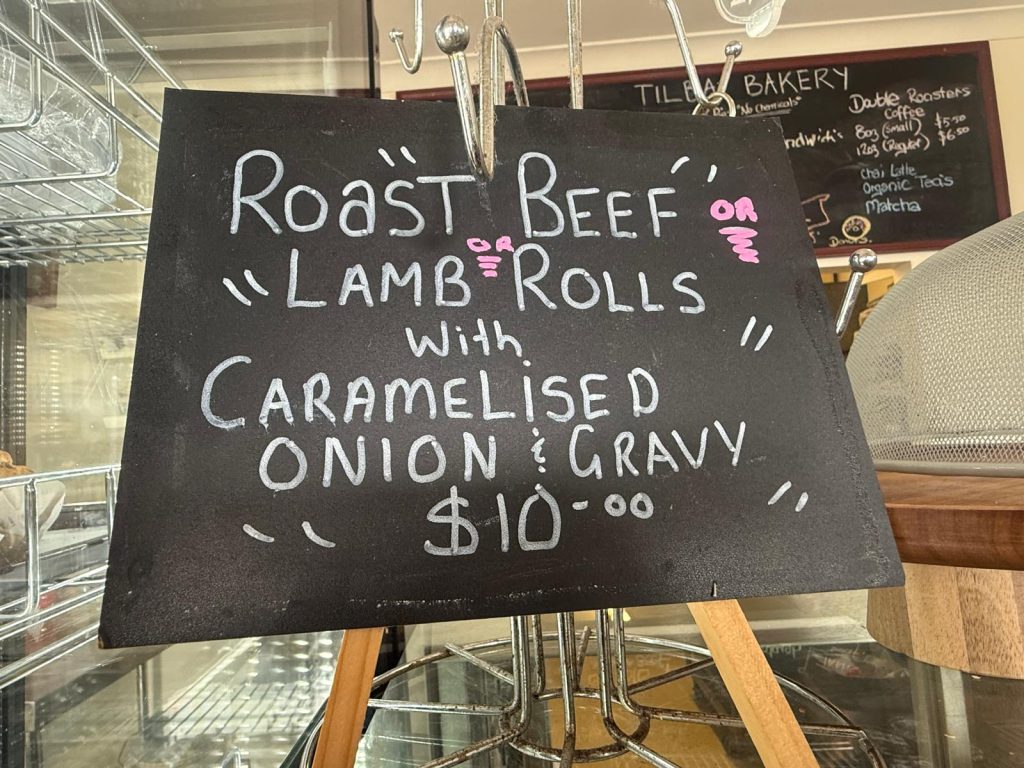 ROAST BEEF OR
LAMB OR ROLLS
With
CARAMELISED
ONION & GRAVY
$10-00
TILBA BAKERY
"No chemicals"
Double Roasters
Coffee
8oz (small) $5.50
12oz (Regular) $6.50
Chai Latte
Organic Teas
Matcha